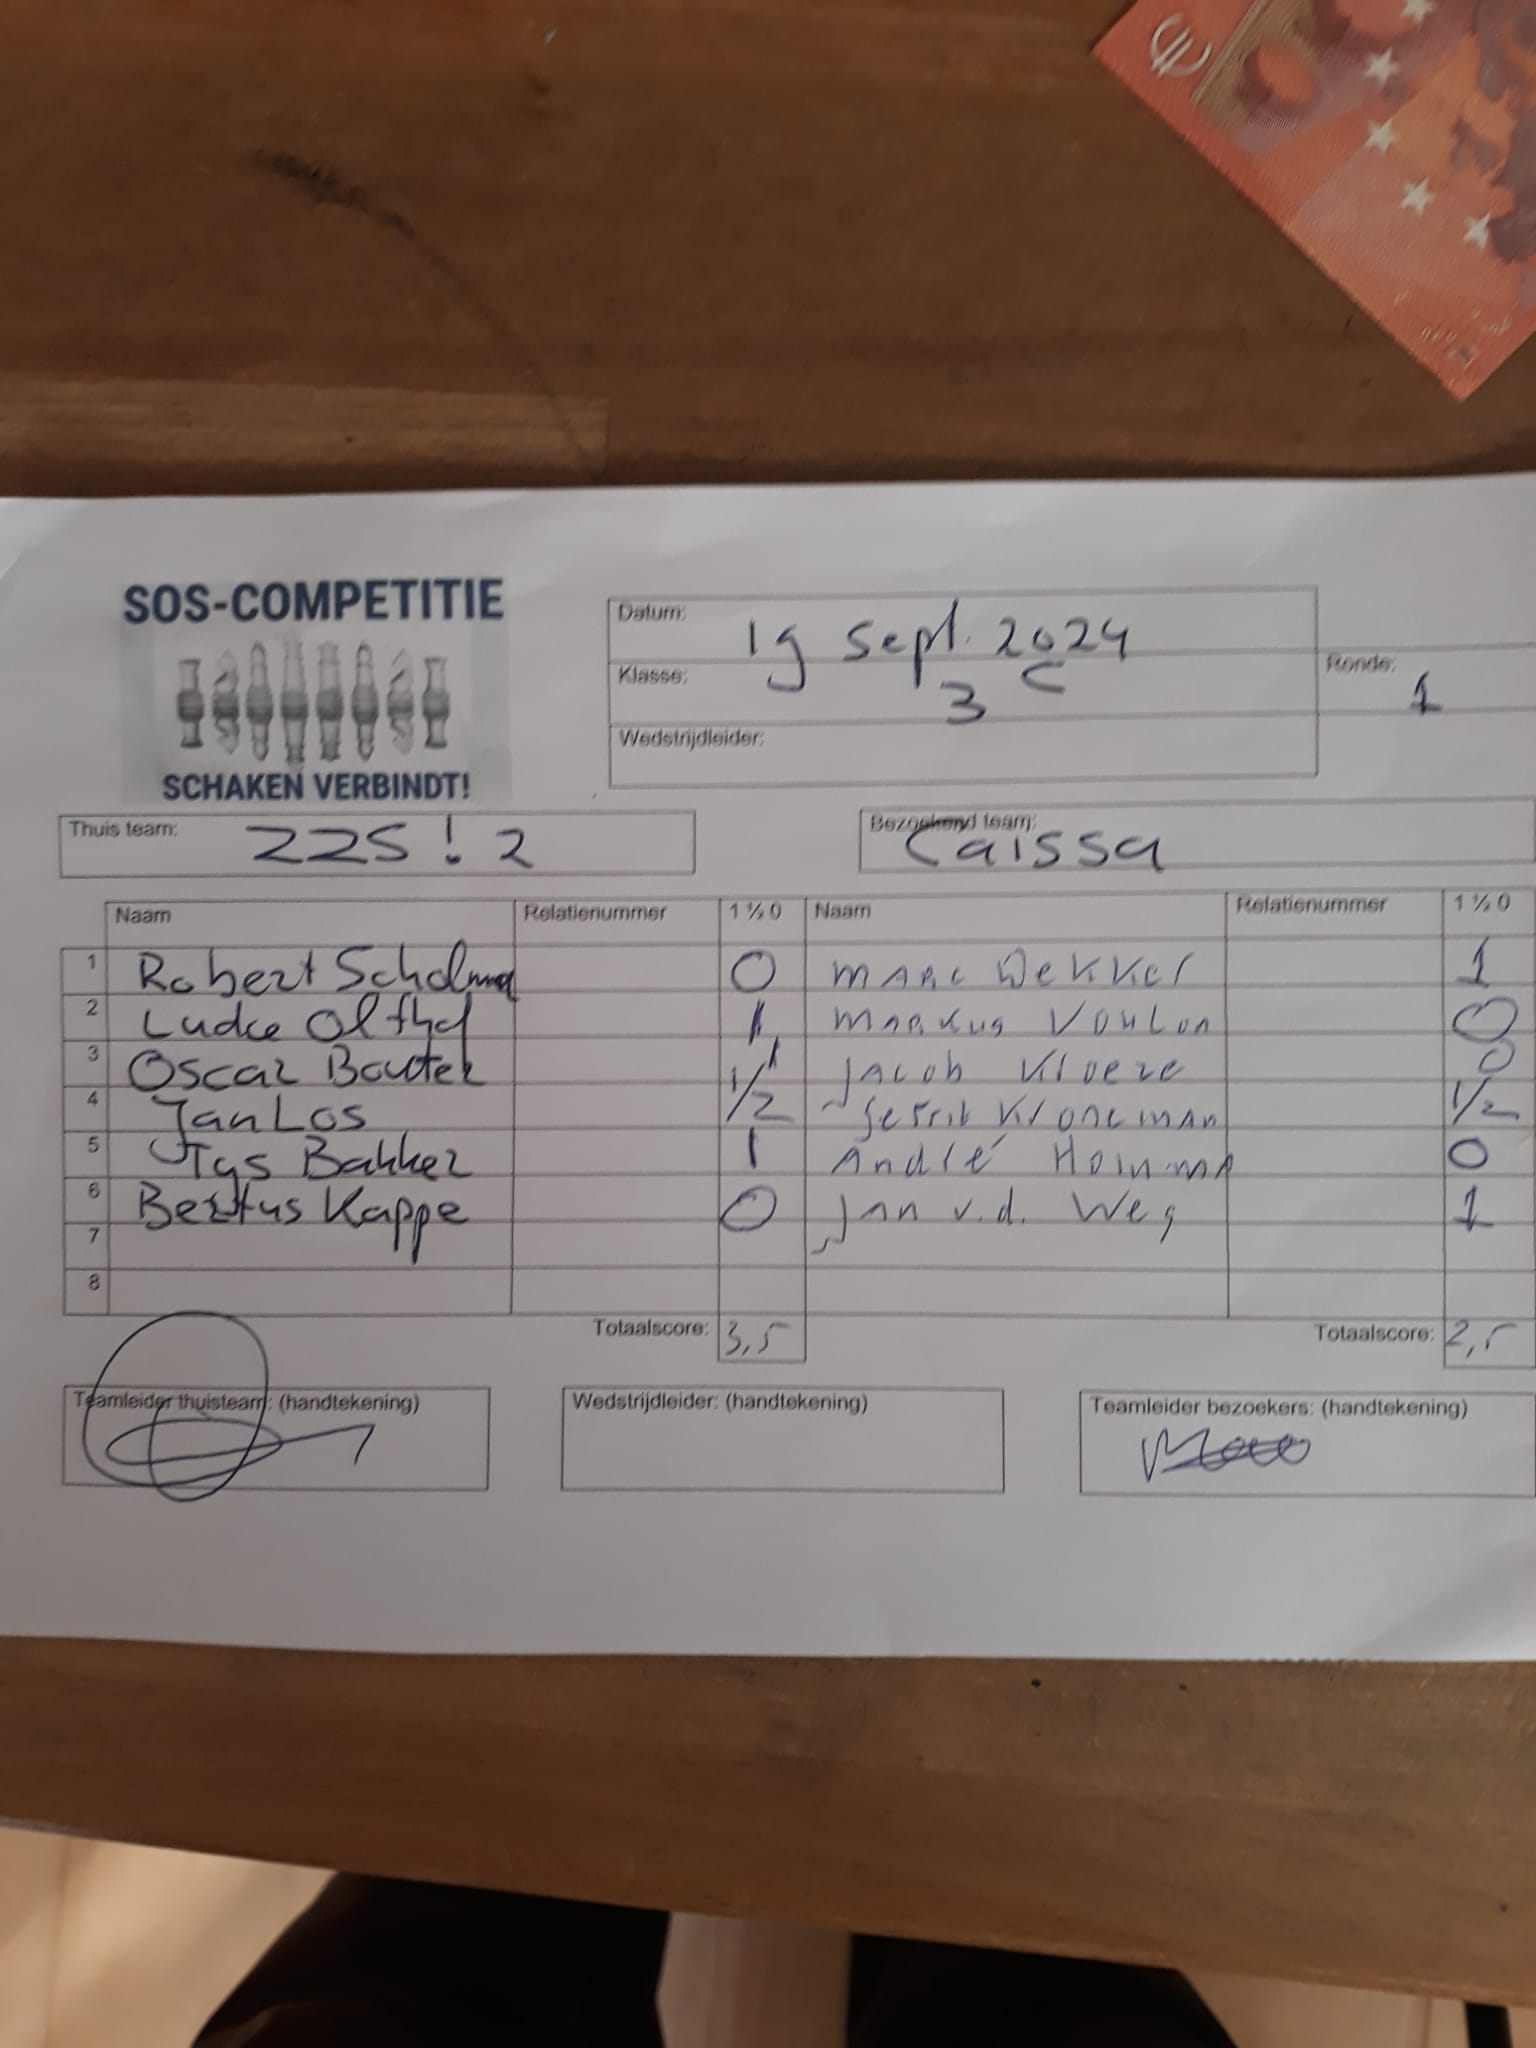 SOS-COMPETITIE
SCHAKEN VERBINDT!
Datum: 19 Sept. 2024
Klasse: 3 C
Ronde: 1
Wedstrijdleider:
Thuis team: ZZS! 2
Bezoekend team: Caissa
Naam Relatienummer 1 ½ 0 Naam Relatienummer 1 ½ 0
1 Robert Scholma 0 Marc Dekker 1
2 Ludke Olthof 1 Markus Voulon 0
3 Oscar Bouter 1 Jacob Kloeze 0
4 Jan Los 1/2 Gerrit Kroneman 1/2
5 Tys Bakker 1 André 0
6 Bertus Kappe 0 Jan v.d. Weg 1
7
8
Totaalscore: 3,5 Totaalscore: 2,5
Teamleider thuisteam: (handtekening) Wedstrijdleider: (handtekening) Teamleider bezoekers: (handtekening)